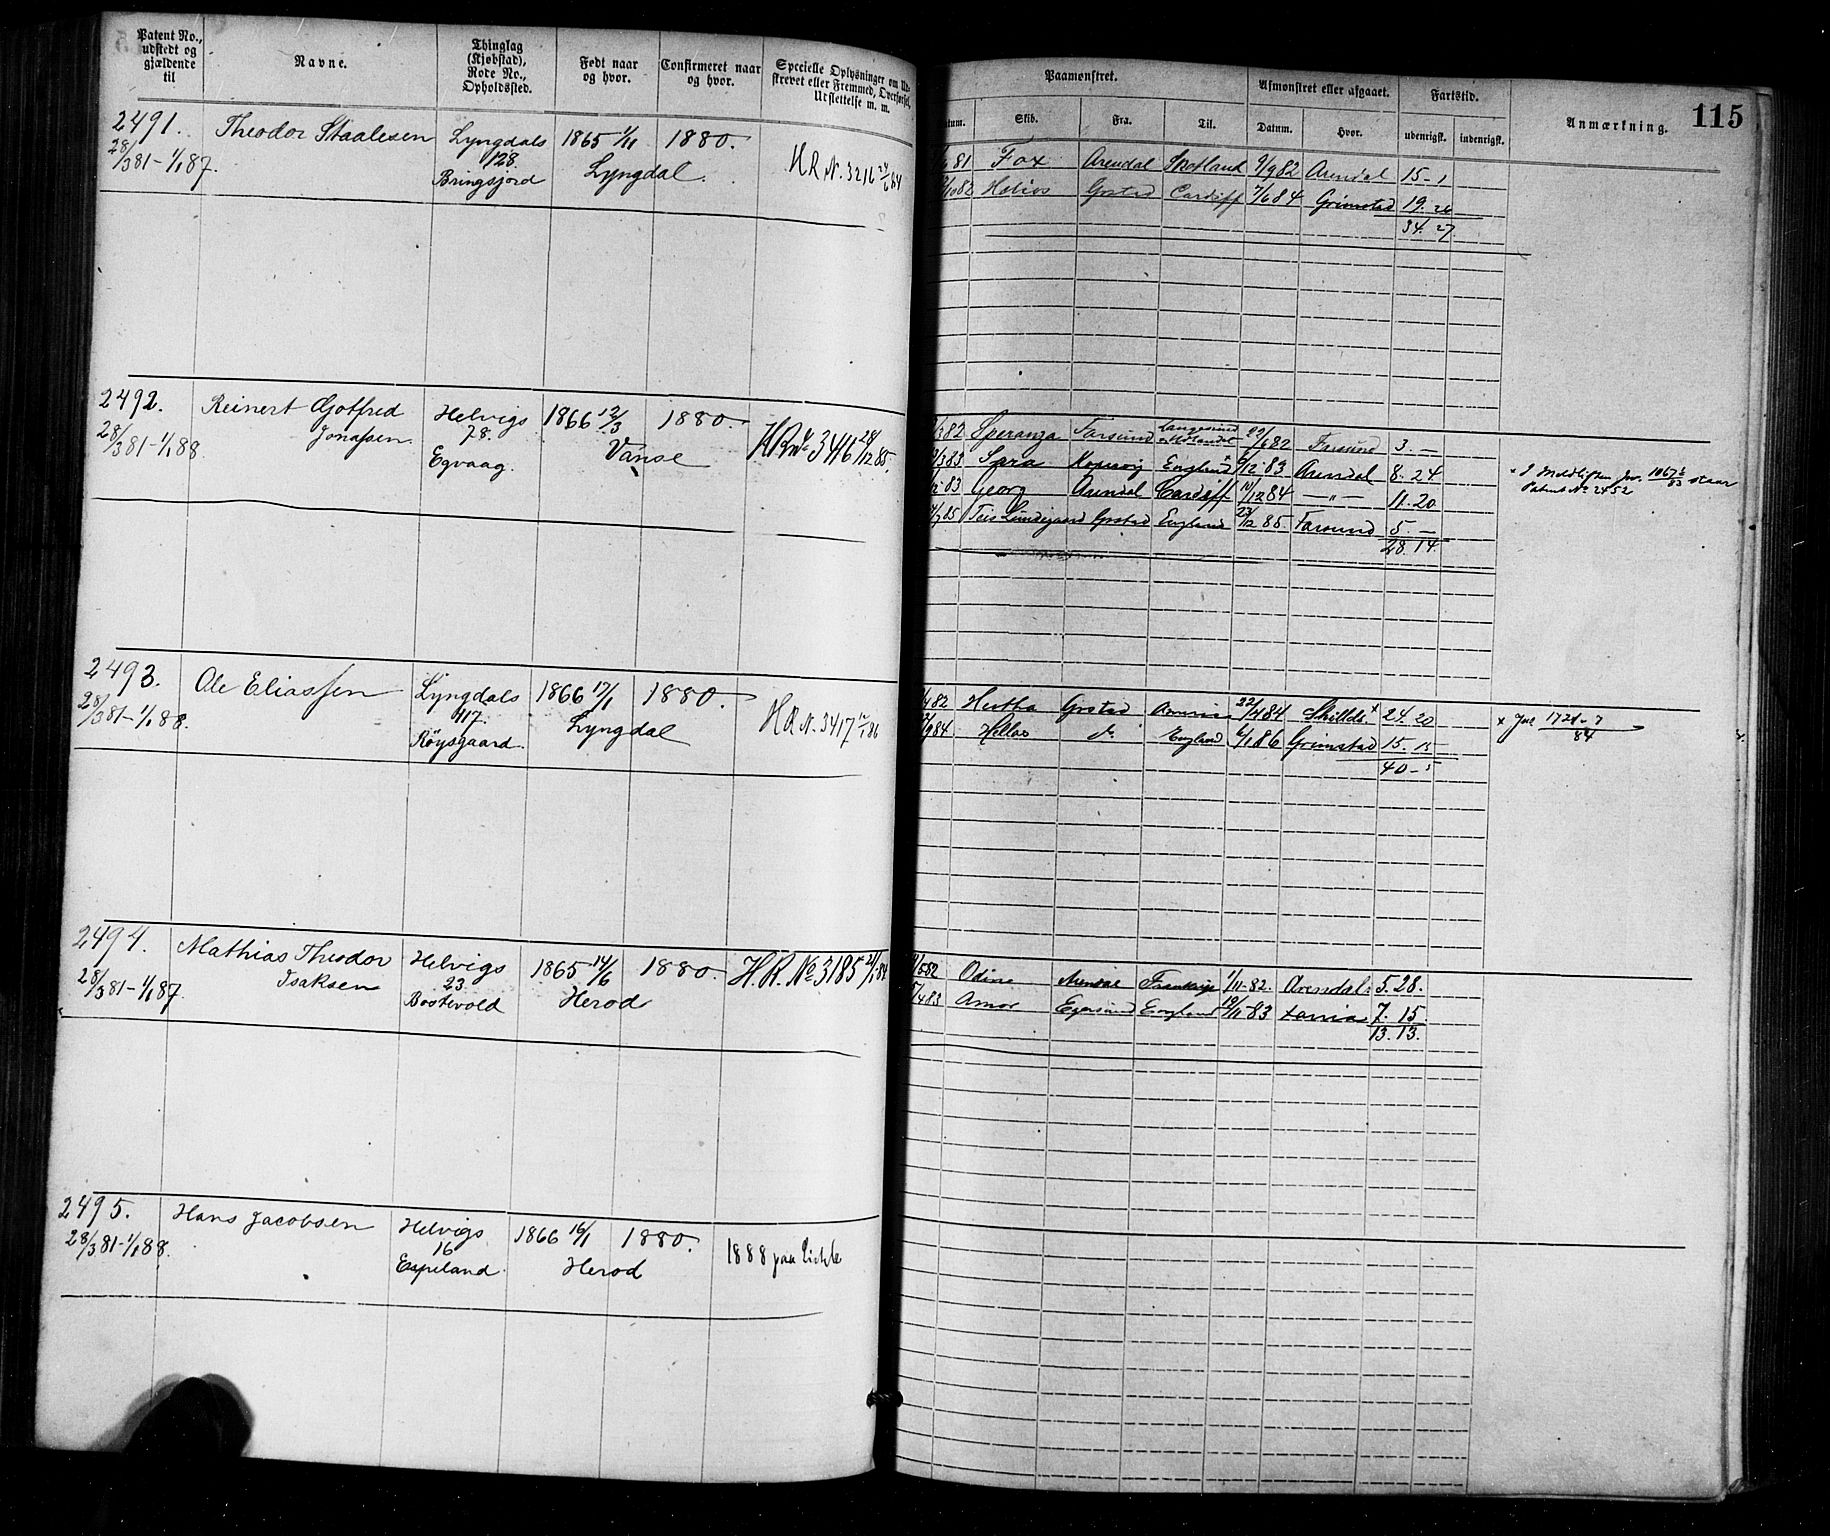 Patent No., udstedt og gjældende til
Navne.
Thinglag (Kjøbstad), Rode No., Opholdssted.
Født naar og hvor.
Confirmeret naar og hvor.
Specielle Oplysninger om Udskrevet eller Fremmed, Overførsel, Udslettelse m. m.
Paamønstret.
Afmønstret eller afgaaet.
Fartstid.
Anmærkning.
115
Skib.
Fra.
Til.
Datum.
Hvor.
udenrigsk.
indenrigsk.
2491. Theodor Staalesen Lyngdals 1865 1/11 1880.
28/3 81-1/1 87. 128 Lyngdal. H.R. N. 3216 24/6 84
Bringsjord
81 Fox Arendal Skotland 9/9 82 Arendal 15. 1
82 Helios Grstad Cardiff 7/6 84 Grimstad 19. 26
34. 27
2492. Reinert Gotfred Helvigs 1866 12/3 1880.
28/3 81-1/1 88 Jonassen 78. Vanse H.R. No 3416 28/12 85.
Egvaag.
/3 82 Speranza Farsund 22/6 82 Farsund 3. –
/3 83 Kopervig England 83 Arendal 8. 24
83 Georg Arendal Cardiff 10/12 84 – " – 11. 20
85 Grstad England 23/12 85. Farsund 5. –
28. 14
staar
Patent No 2452
2493. Ole Eliassen Lyngdals 1866 17/1 1880.
28/3 81-1/1 88. 417. Lyngdal H.R. N. 3417 86
Røysgaard
/4 82 Hertha Grstad 22/4 84 24. 20
/9 84 Hellas do England 6/1 86 Grimstad 15. 15
40 – 5
2494. Mathias Theodor Helvigs 1865 14/6 1880.
28/3 81-1/1 87. Isaksen 23 Herod H.R. No 3185 84
Bostevold
/5 82 Odin Arendal Frankrige 1/11 82. Arendal 5. 28.
/4 83 Amor Egersund England 19/11 83 7. 15.
13. 13.
2495. Hans Jacobsen Helvigs 1866 16/1 1880.
28/3 81-1/1 88. 16 Herod 1888 paa
Espeland